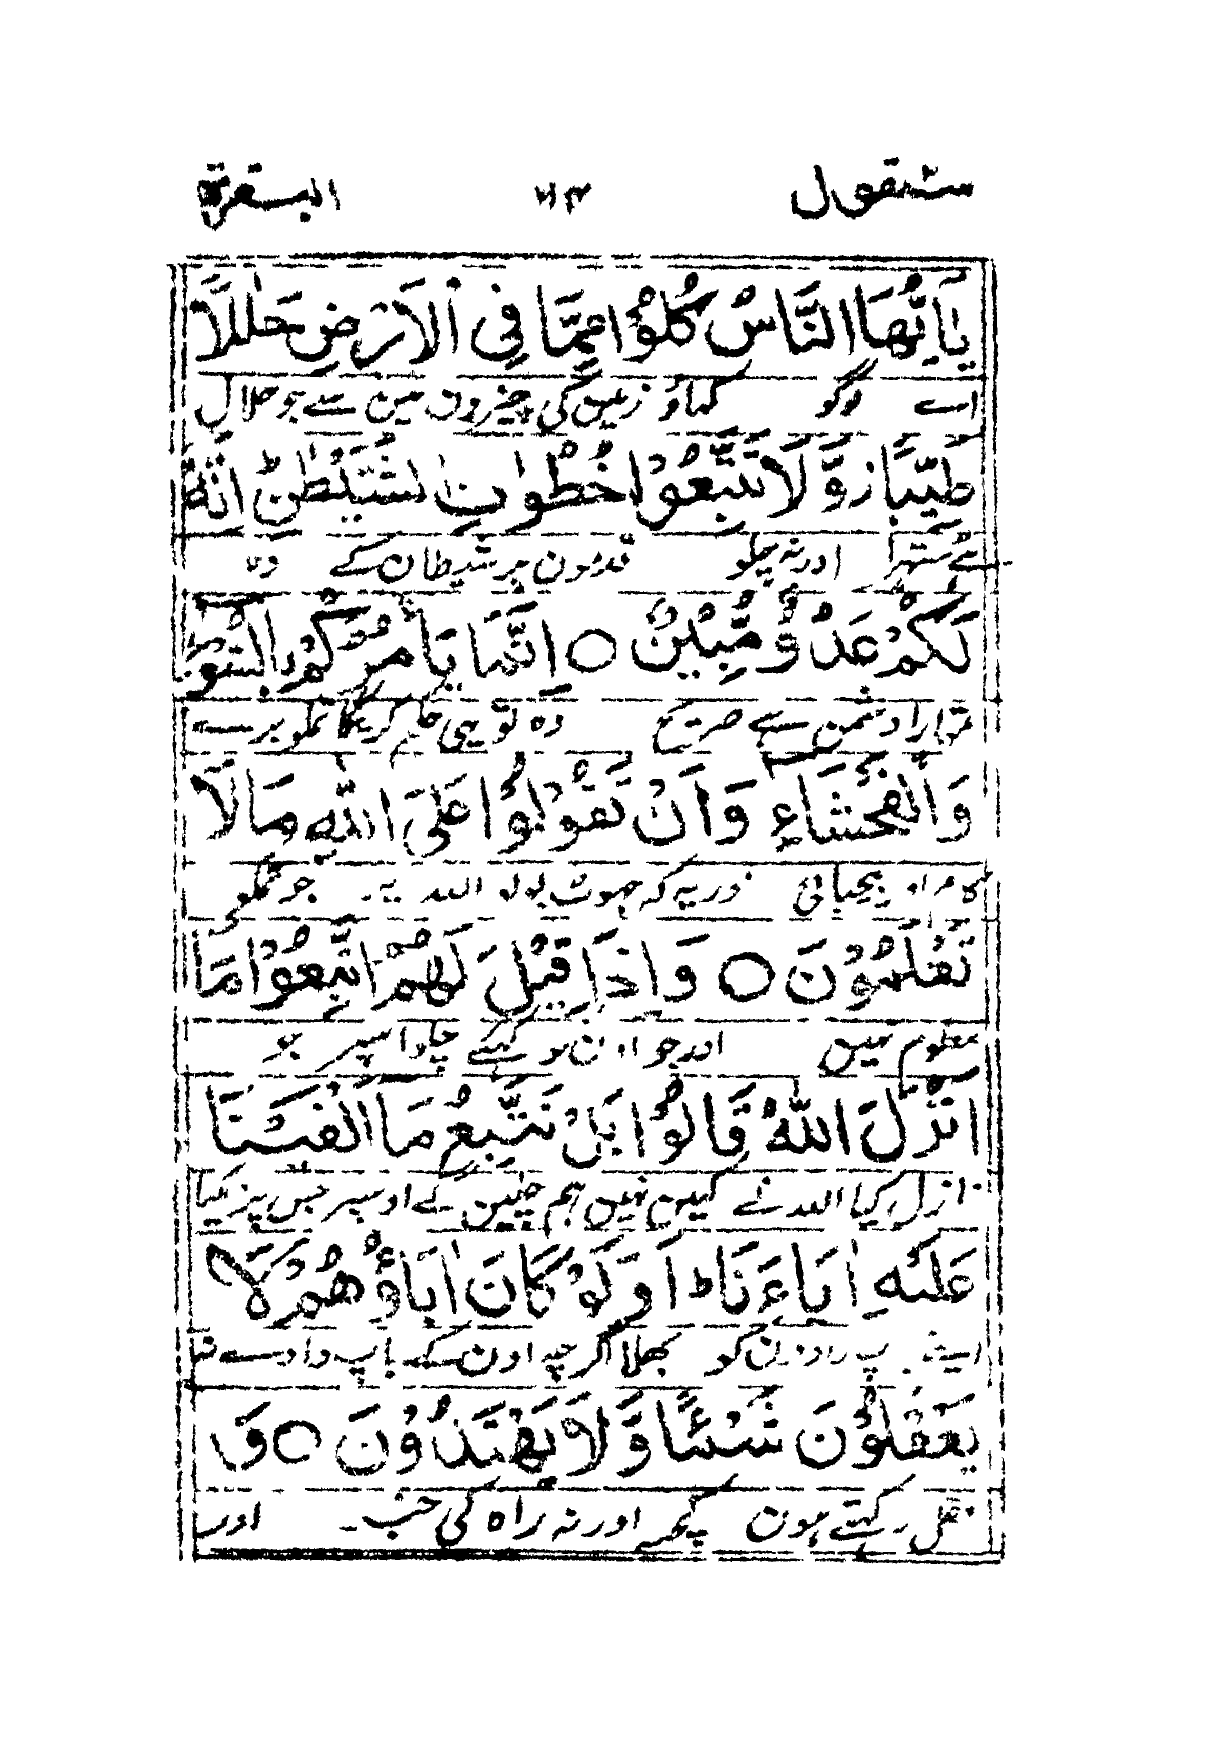 سيقول ۶۴ البقرة
يٰٓاَيُّهَا النَّاسُ كُلُوْا مِمَّا فِى الْاَرْضِ حَلٰلًا
اے لوگو کھاؤ زمین کی چیزون مین سے جو حلال
طَيِّبًا ز وَّ لَا تَتَّبِعُوْا خُطُوٰتِ الشَّيْطٰنِ ط اِنَّهٗ
ہے ستھرا اور نہ چلو قدمون پر شیطان کے وہ
لَكُمْ عَدُوٌّ مُّبِيْنٌ ○ اِنَّمَا يَاْمُرُكُمْ بِالسُّوْٓءِ
تمہارا دشمن ہے صریح وہ تو یہی حکم کریگا تمکو برے
وَالْفَحْشَآءِ وَاَنْ تَقُوْلُوْا عَلَى اللّٰهِ مَا لَا
بیحیائی اور یہ کہ جھوٹ بولو اللہ پر جو تمکو
تَعْلَمُوْنَ ○ وَاِذَا قِيْلَ لَهُمُ اتَّبِعُوْا مَآ
معلوم نہین اور جو اون کو کہئے چلو اسپر جو
اَنْزَلَ اللّٰهُ قَالُوْا بَلْ نَتَّبِعُ مَآ اَلْفَيْنَا
نازل کیا اللہ نے کہین نہین ہم چلینگے اوسپر جس پر دیکھا
عَلَيْهِ اٰبَآءَنَا ط اَوَلَوْ كَانَ اٰبَآؤُهُمْ لَا
اپنے باپ دادون کو بھلا اگرچہ اون کے باپ دادے نہ
يَعْقِلُوْنَ شَيْئًا وَّلَا يَهْتَدُوْنَ ○ وَ
عقل رکھتے ہون کچھ اور نہ راہ کی خبر اور